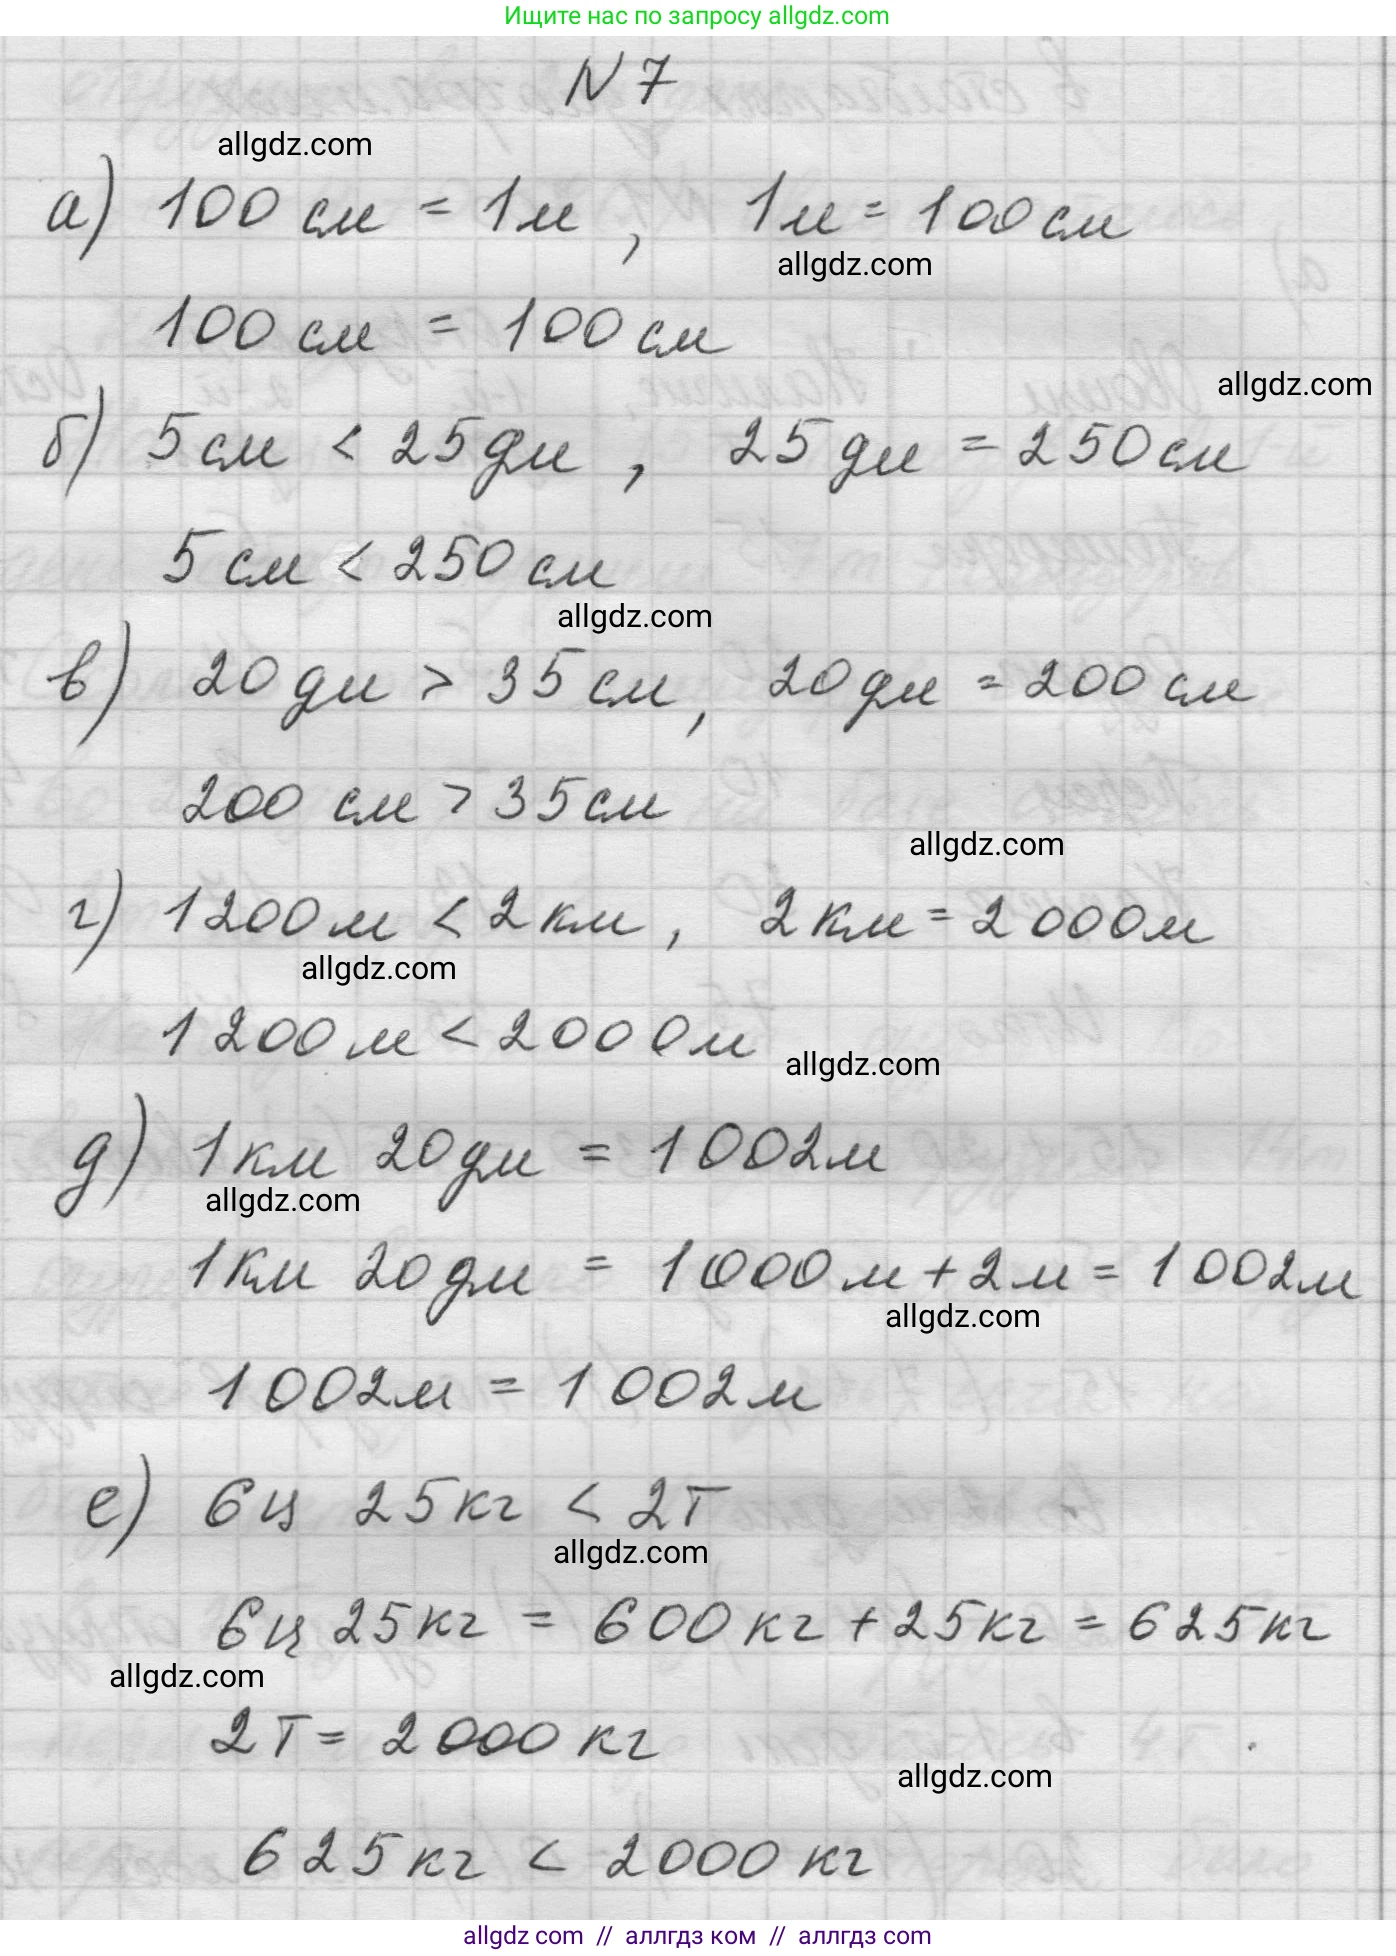 Ищите нас по запросу allgdz.com
N 7
allgdz.com
а) 100 см = 1м, 1м = 100 см
allgdz.com
100 см = 100 см
allgdz.com
б) 5 см < 25 дм, 25 дм = 250 см
5 см < 250 см
allgdz.com
в) 20 дм > 35 см, 20 дм = 200 см
200 см > 35 см
allgdz.com
г) 1200 м < 2 км, 2 км = 2000 м
allgdz.com
1200 м < 2000 м
allgdz.com
д) 1 км 20 дм = 1002 м
allgdz.com
1 км 20 дм = 1000 м + 2 м = 1002 м
allgdz.com
1002 м = 1002 м
е) 6 ц 25 кг < 2 т
allgdz.com
6 ц 25 кг = 600 кг + 25 кг = 625 кг
allgdz.com
2 т = 2000 кг
allgdz.com
625 кг < 2000 кг
allgdz com // аллгдз ком // аллгдз com